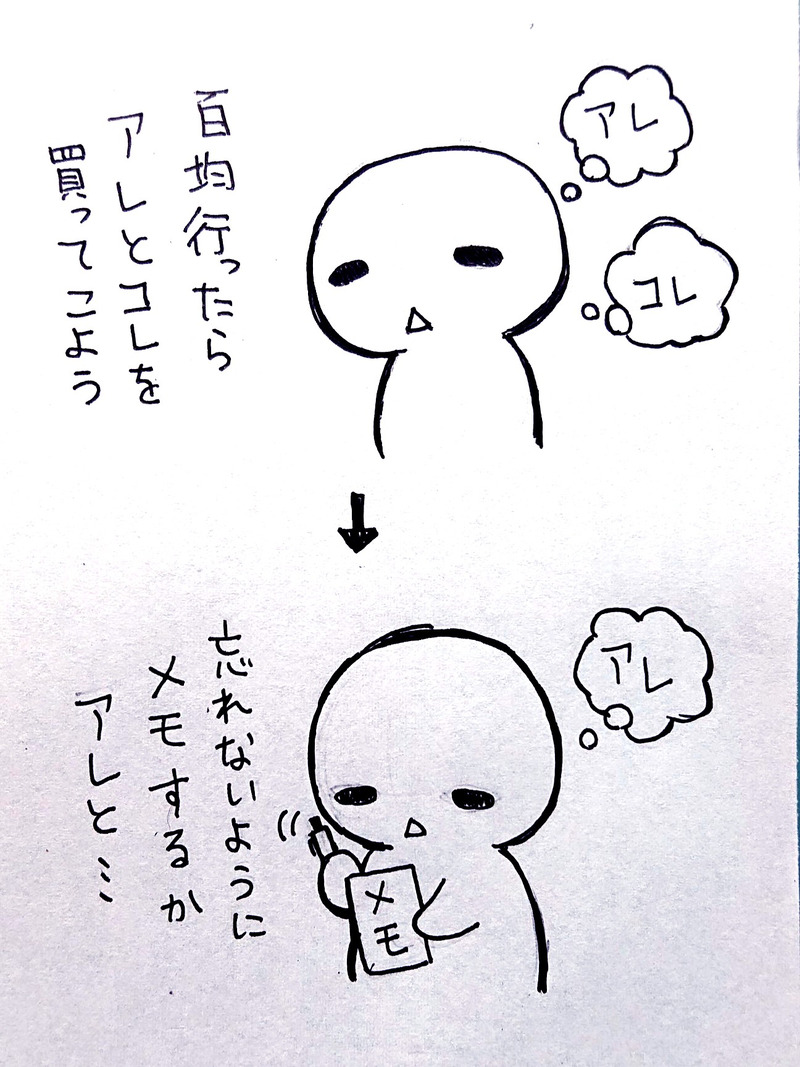 百均行ったら
アレとコレを
買ってこよう
アレ
コレ
忘れないように
メモするか
アレと…
アレ
メモ